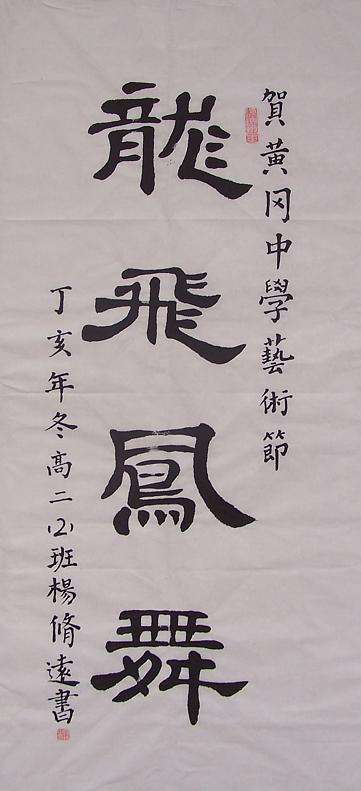 賀黃冈中學藝術節
龍飛鳳舞
丁亥年冬高二(2)班楊脩遠書